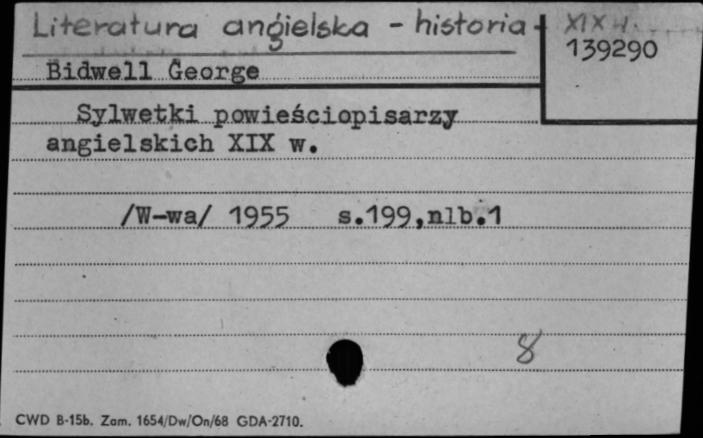 Literatura angielska - historia - XIX w.
139290
Bidwell George
Sylwetki powieściopisarzy
angielskich XIX w.
/W-wa/ 1955 s.199,nlb.1
8
CWD B-15b. Zam. 1654/Dw/On/68 GDA-2710.